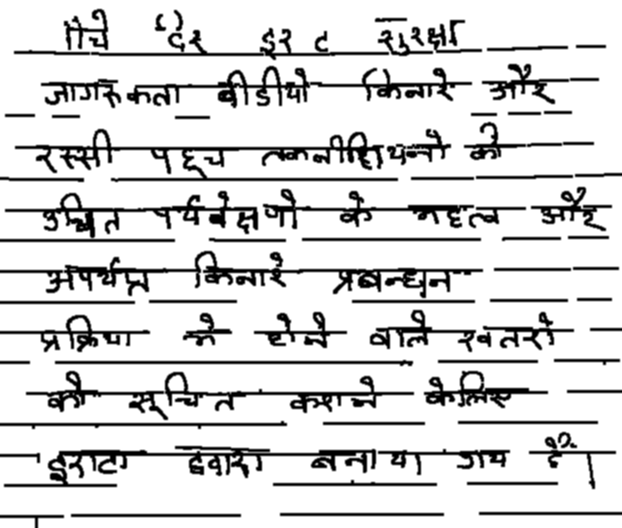 नीचे देर इरट सुरक्षा
जागरुकता वीडीयो किनारे और
रस्सी पहूच तकनीशियनो को
उचित पर्यवेक्षणो के महत्व और
अपर्याप्त किनारे प्रबन्धन
प्रक्रिया मे होने वाले खतरो
को सूचित कराने केलिए
इराटा द्वारा बनाया गय है।